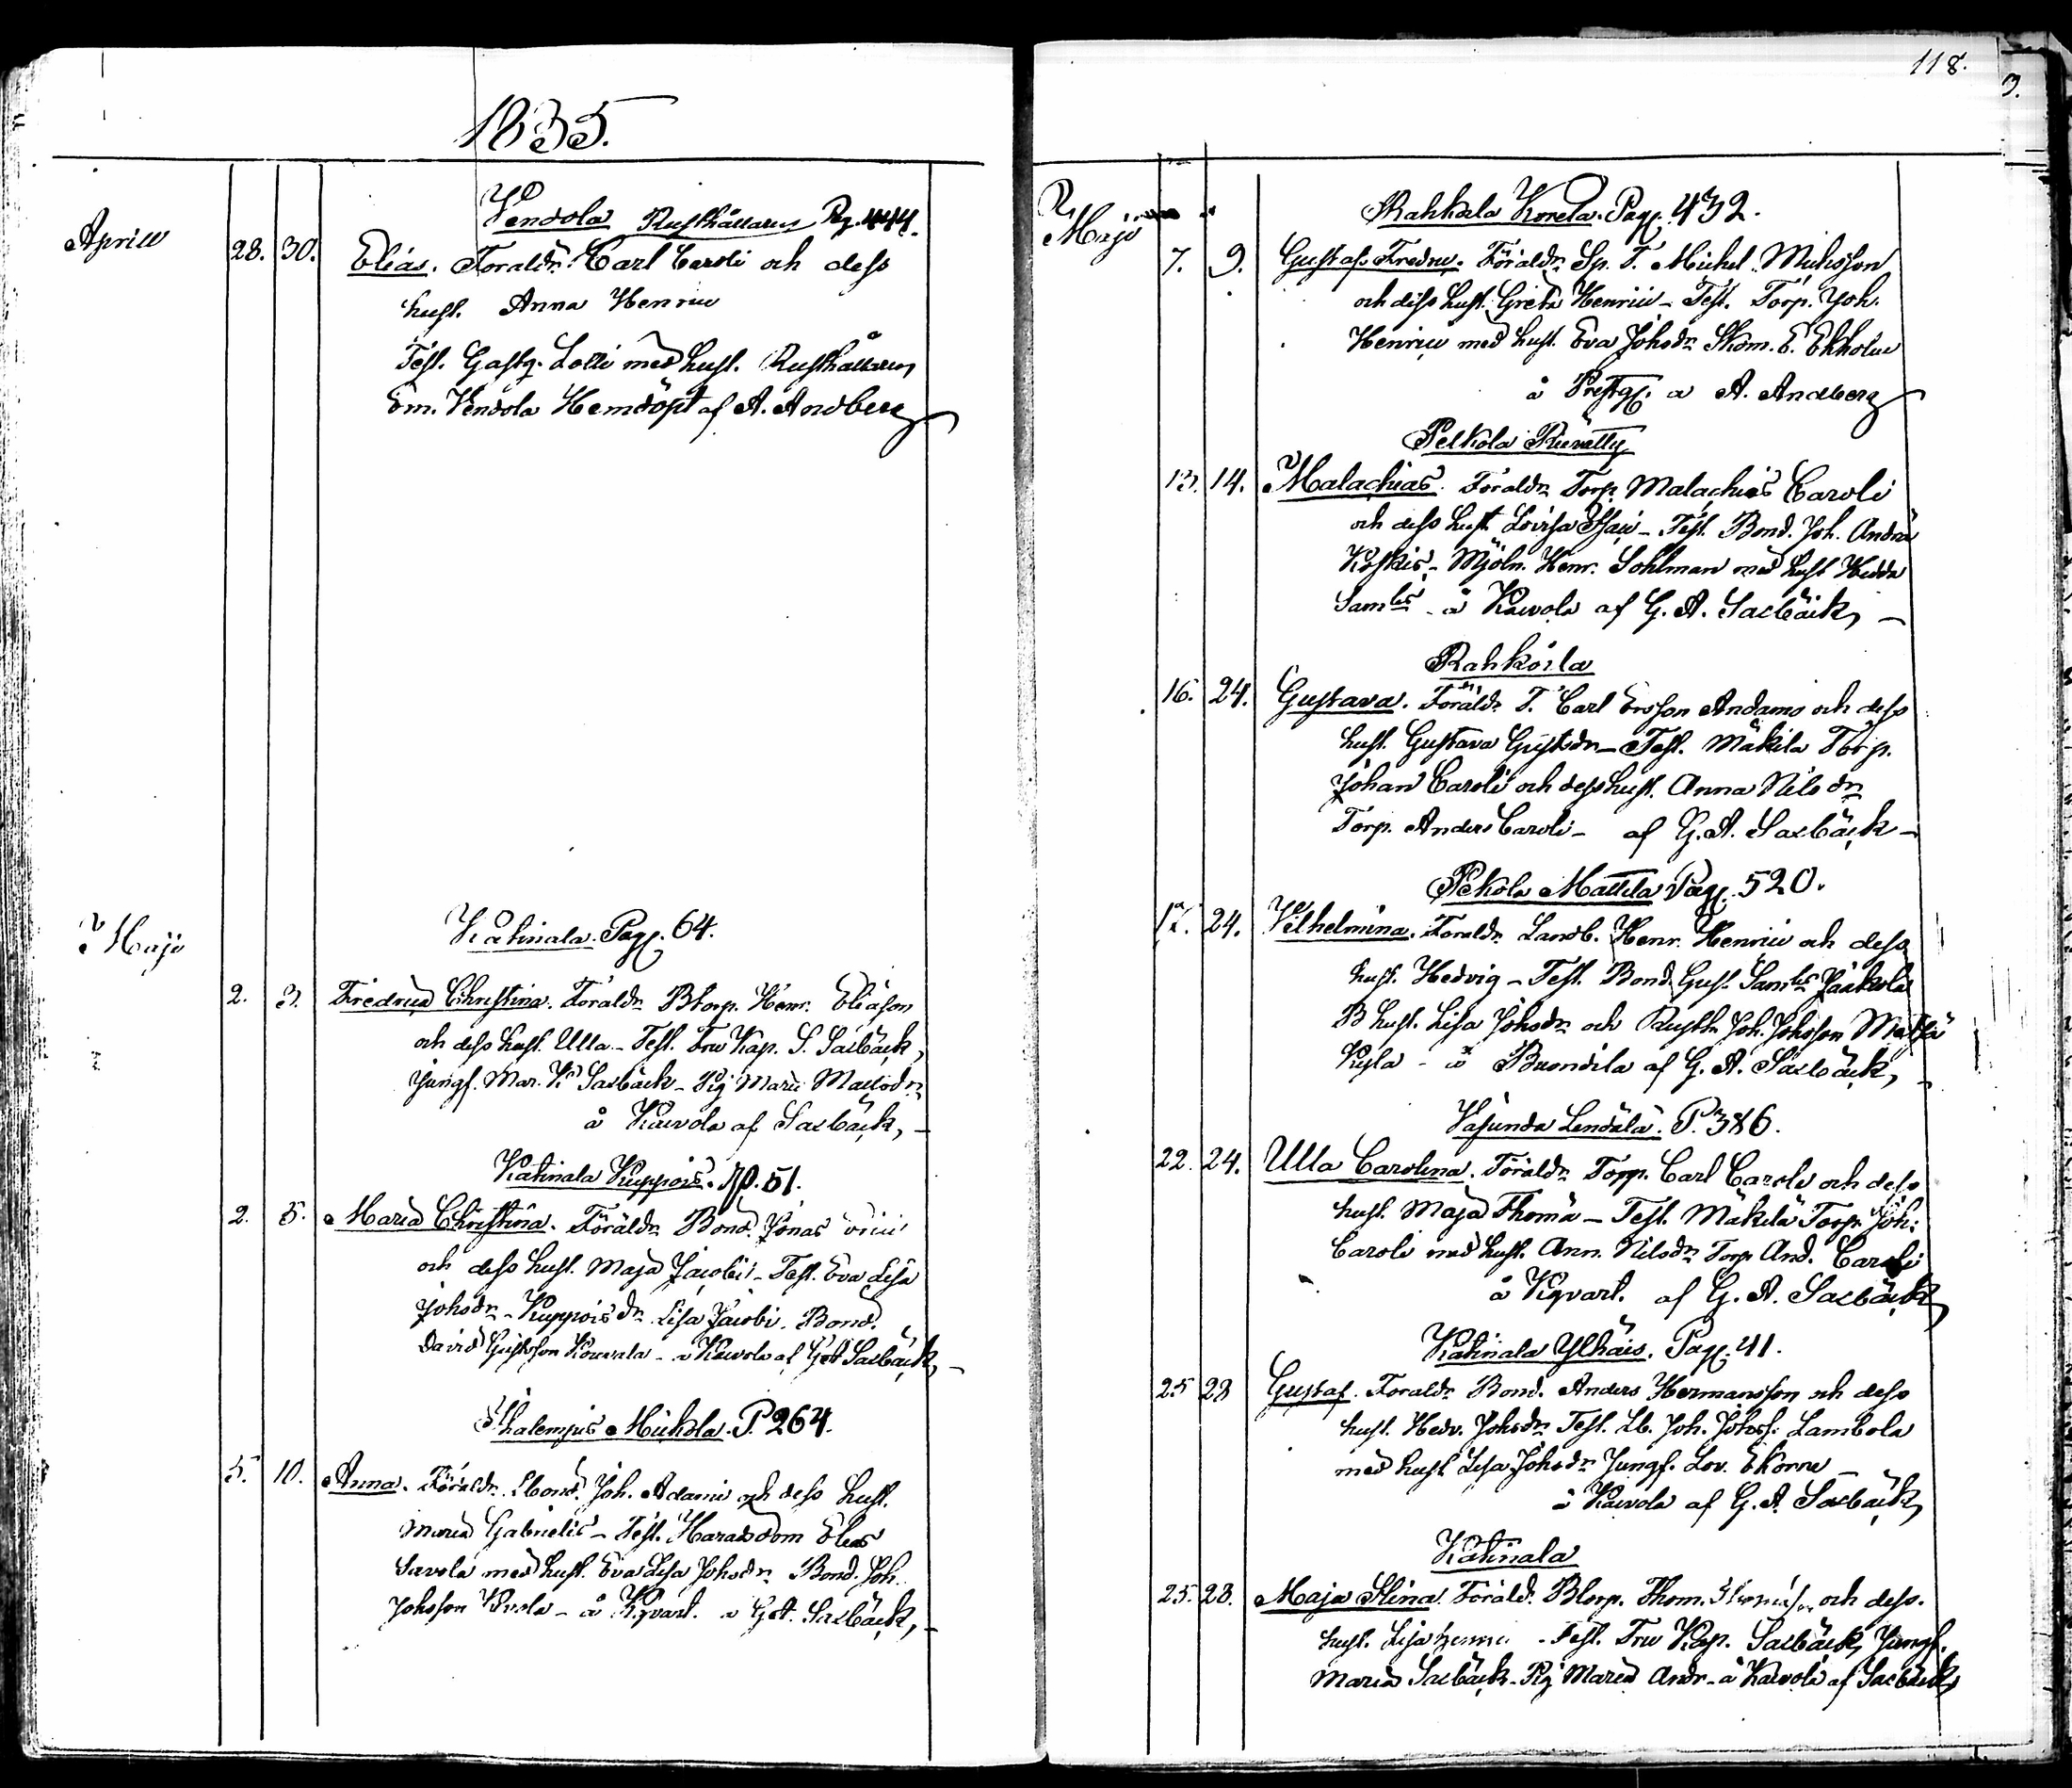 1835.
Aprill
Vendola Rusthållaren Pag. 444.
28. 30. Elias. Föräldr: Carl Caroli och dess
hust. Anna Henrici
Test. Gästg. Lotti med hust. Rusthållaren
Em. Vendola Hemdöpt af A. Andberg
Majo
Katinala. Pag. 64.
2. 3. Fredrica Christina. Föräldr. Btorp. Henr. Eliason
och dess hust. Ulla - Test. Fru Kap. S. Sacbäck,
Jungf. Mar. Sacbäck - Pig Maria
å Kaivola af Sacbäck, -
Katinala Kuppois. P. 51.
2. 5. Maria Christina. Föräldr. Bond. Jonas
och dess hust. Maja Jacobi - Test. Eva Lisa
Johsdr - Kuppois dr Lisa Jacobi. Bond.
David Gustfson - å Kaivola af Sacbäck, -
Thalempis Mickola. P. 264.
5. 10. Anna. Föräldr. Joh. Adami och dess hust.
Maria Gabrielis - Test. Häradsdom Elias
Savola med hust. Eva Lisa Johsdr. Bond. Joh.
Johsson - å Kqvart. a Sacbäck, -
118.
Majo
Rahkala Korela. Pag. 432.
7. 9. Gustaf Fredric. Föräldr. Sp. T. Michel Michsson
och dess hust. Greta Henrici - Test. Torp. Joh.
Henrici med hust. Eva Johsdr Skom. E. Ekholm
å Prestg. a A. Andberg
Pelkola
13. 14. Malachias. Föräldr. Torp. Malachias Caroli
och dess hust. Lovisa Esaiæ - Test. Bond. Joh. Andræ
Koskis - Mjöln. Henr. Sohlman med hust Hedda
Samls - å Kaivola af G. A. Sacbäck, -
Rahkoila
16. 24. Gustava. Föräldr. T. Carl Ersson Andams och dess
hust. Gustava Gustsdr - Test. Mäkilä Torp.
Johan Caroli och dess hust. Anna Nilsdr
Torp. Anders Caroli - af G. A. Sacbäck -
Pekola Mattila Pag. 520.
17. 24. Vilhelmina. Föräldr. Landb. Henr. Henrici och dess
hust. Hedvig - Test. Bond. Gust. Samls Jaakola
B hust. Lisa Johsdr och Rusth. Joh. Johsson
- å af G. A. Sacbäck, -
Vasunda Lendälä. P. 386.
22. 24. Ulla Carolina. Föräldr. Torp. Carl Caroli och dess
hust. Maja Thomæ - Test. Mäkilä Torp. Joh.
Caroli med hust. Ann. Nilsdr Torp And. Caroli
å Kqvart. af G. A. Sacbäck
Katinala Ylhäis. Pag. 41.
25 28 Gustaf. Föräldr. Bond. Anders Hermansson och dess
hust. Hedv. Johsdr Test. Lb. Joh. Johss: Lambola
med hust Lisa Johsdr Jungf. Lov. Ekorre
å Kaivola af G. A. Sacbäck
Katinala
25. 28. Maja Stina. Föräld. Btorp. Thom. och dess
hust. Lisa - Test. Fru Kap. Sacbäck, Jungf.
Maria Sacbäck - Pig Maria Andr - å Kaivola af Sacbäck